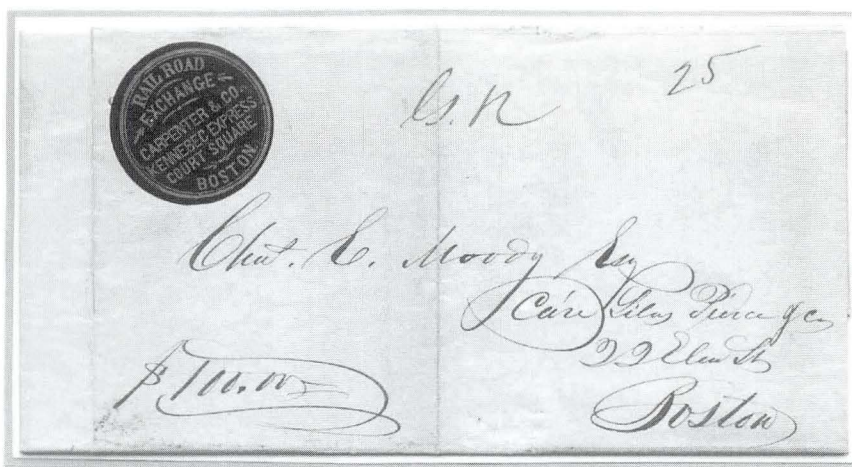 RAIL ROAD
EXCHANGE
CARPENTER & CO.
KENNEBEC EXPRESS
COURT SQUARE
BOSTON
25
Chas. E. Moody Esq
Care Silas Pierce & Co
22 Elm St
$100.00
Boston